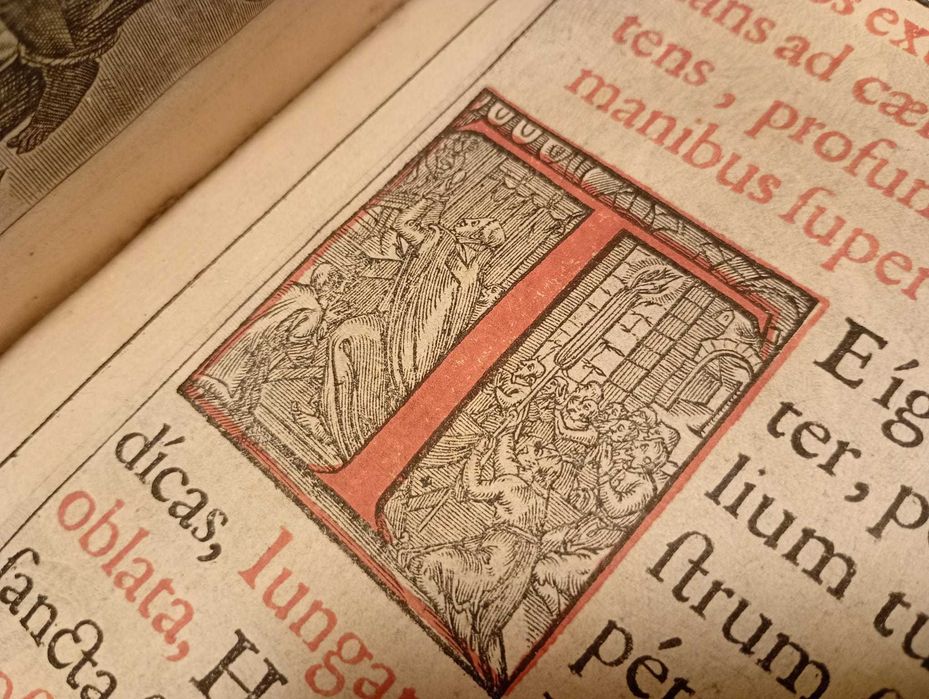 os ex
ans ad cæ
tens, profun
manibus ſuper
T
E íg
ter, p
lium tu
ſtrum
pét
dícas, Iunga
oblata, H
ſancta